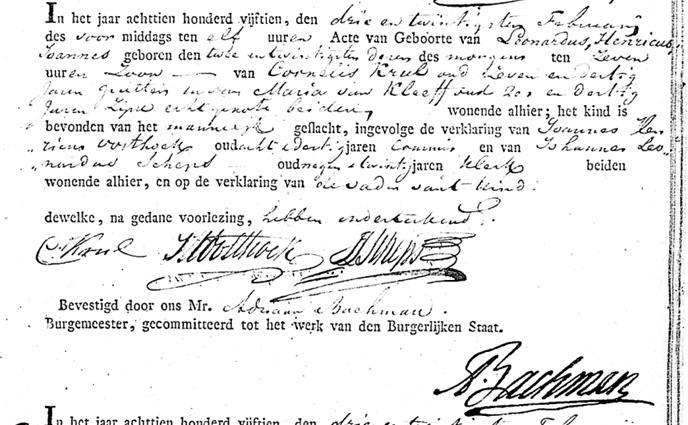 In het jaar achttien honderd vijftien, den drie en twintigsten Februarij
des voor middags ten elf uuren Acte van Geboorte van Leonardus, Henricus,
Joannes geboren den twee en twintigsten dezer des morgens ten zeven
uuren Zoon van Cornelis Krul oud zeven en dertig
Jaren en van Maria van Kleeff oud zes en dertig
Jaren Zijne echtgenote beiden, wonende alhier; het kind is
bevonden van het mannelijk geslacht, ingevolge de verklaring van Joannes Hen-
ricus oud acht en dertig jaren Commies en van Johannes Leo-
nardus Scheps oud negen en twintig jaren Klerk beiden
wonende alhier, en op de verklaring van de vader van 't kind.
dewelke, na gedane voorlezing, hebben ondertekend.
C. Krul
Bevestigd door ons Mr. Adriaan Bachman.
Burgemeester, gecommitteerd tot het werk van den Burgerlijken Staat.
A. Bachman
In het jaar achttien honderd vijftien, den drie en twintigsten Februarij